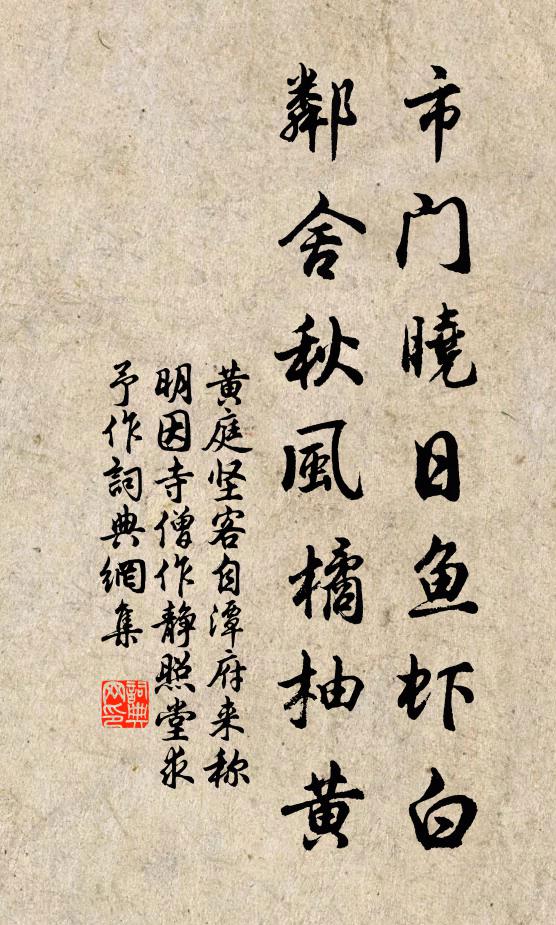 市门曉日鱼虾白
鄰舍秋風橘柚黄
黄庭坚客自潭府来称
明因寺僧作静照堂求
予作詞典網集
詞典
网印